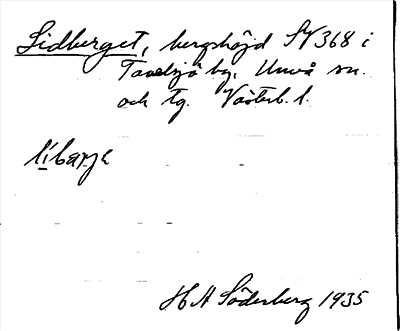 Lidberget, bergshöjd SV 368 i
Tavelsjö by, Umeå sn.
och tg. Västerb. l.
H A Söderberg 1935